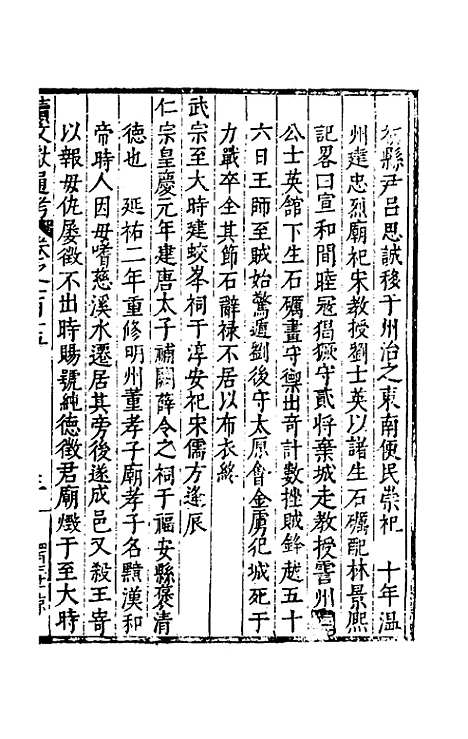 縣尹呂思誠移于州治之東南便民崇祀　十年溫
州建忠烈廟祀宋教授劉士英以諸生石礪配林景熈
記畧曰宣和間睦冠猖獗守貳將棄城走教授雲州
公士英舘下生石礪畫守禦出竒計數挫賊鋒越五十
六日王師至賊始驚遁劉後守太原會金虜犯城死于
力戰卒全其節石辭禄不居以布衣終
武宗至大時建蛟峯祠于淳安祀宋儒方逢辰
仁宗皇慶元年建唐太子補闕薛令之祠于福安縣襃清
德也　延祐二年重修明州董孝子廟孝子名黯漢和
帝時人因毋嗜慈溪水遷居其旁後遂成邑又殺王竒
以報毋仇屡徵不出時賜號純德徵君廟燬于至大時
續文獻通考　卷之一百十五